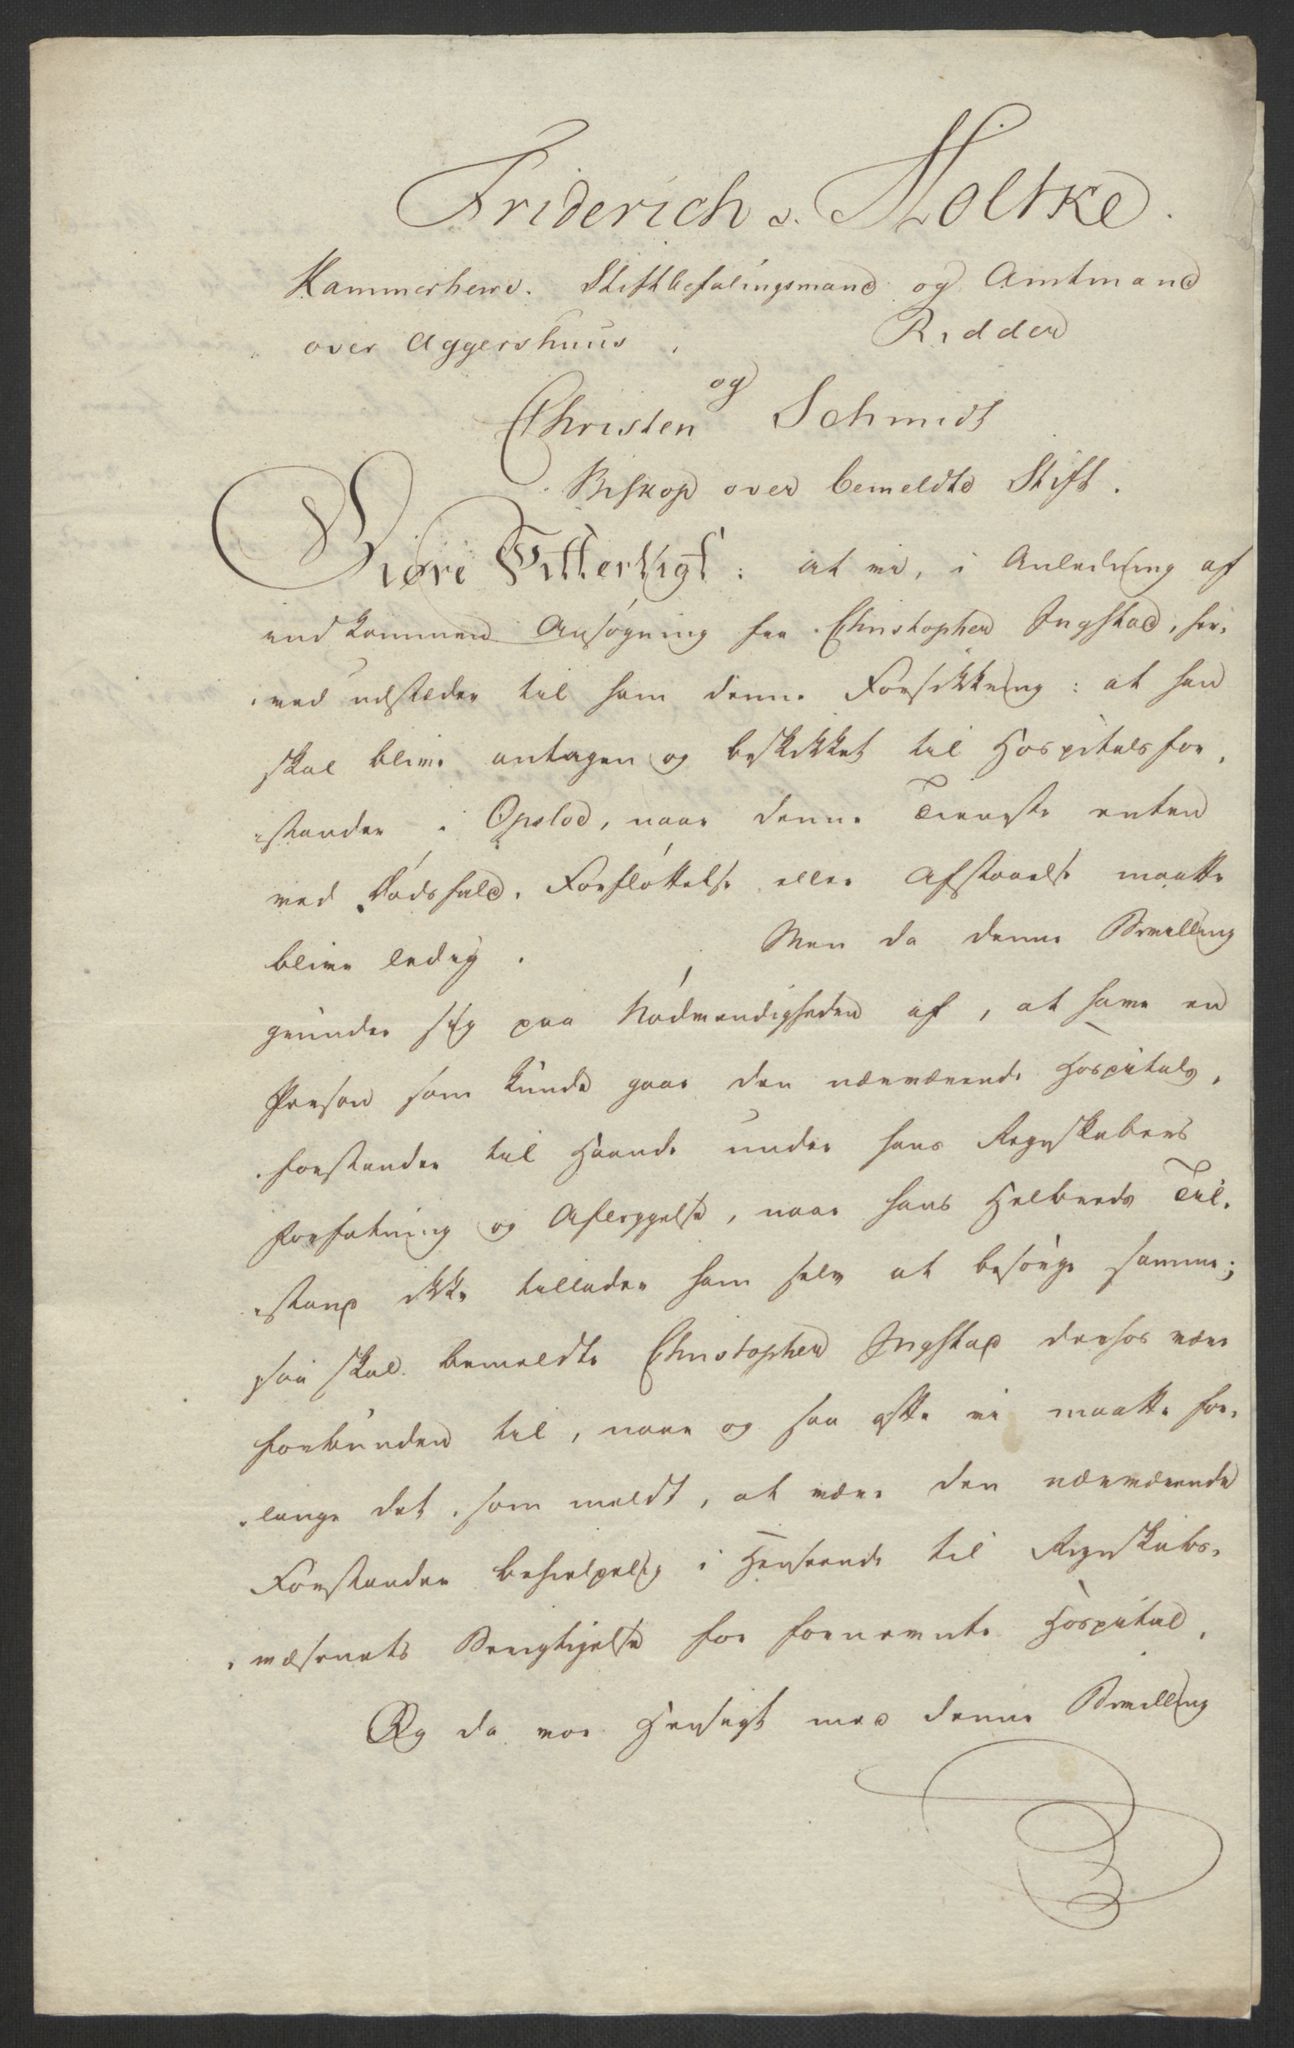 Friderich v. Moltke.
Kammerherre. Stiftbefalingsmand og Amtmand
over Aggershuus, Ridder
og
Christen Schmidt
Biskop over bemeldte Stift.
Giøre Vitterligt: at vi, i Anledning af
indkommen Ansøgning fra Christopher Ingstad, her-
-ved udstæder til ham denne Forsikkring: at han
skal blive antagen og beskikket til Hospitalsfor-
-stander i Opslod, naar denne Tieneste enten
ved Dødsfald, Forfløttelse eller Afstaaelse maatte
blive ledig. Men da denne Bevilling
grunder sig paa Nødvendigheden af, at have en
Person som kunde gaae den nærværende Hospitals-
-forstander til Haande under hans Regnskabers
Forfatning og Aflæggelse, naar hans Helbreds Til-
-stand ikke tillader ham selv at besørge samme;
saa skal bemeldte Christopher Ingstad derhos være
forbunden til, naar og saa ofte vi maatte for-
-lange det, som meldt, at være den nærværende
Forstander behielpelig i Henseende til Regnskabs-
-væsenets Berigtigelse for fornevnte Hospital.
Og da vor Hensigt med denne Bevilling